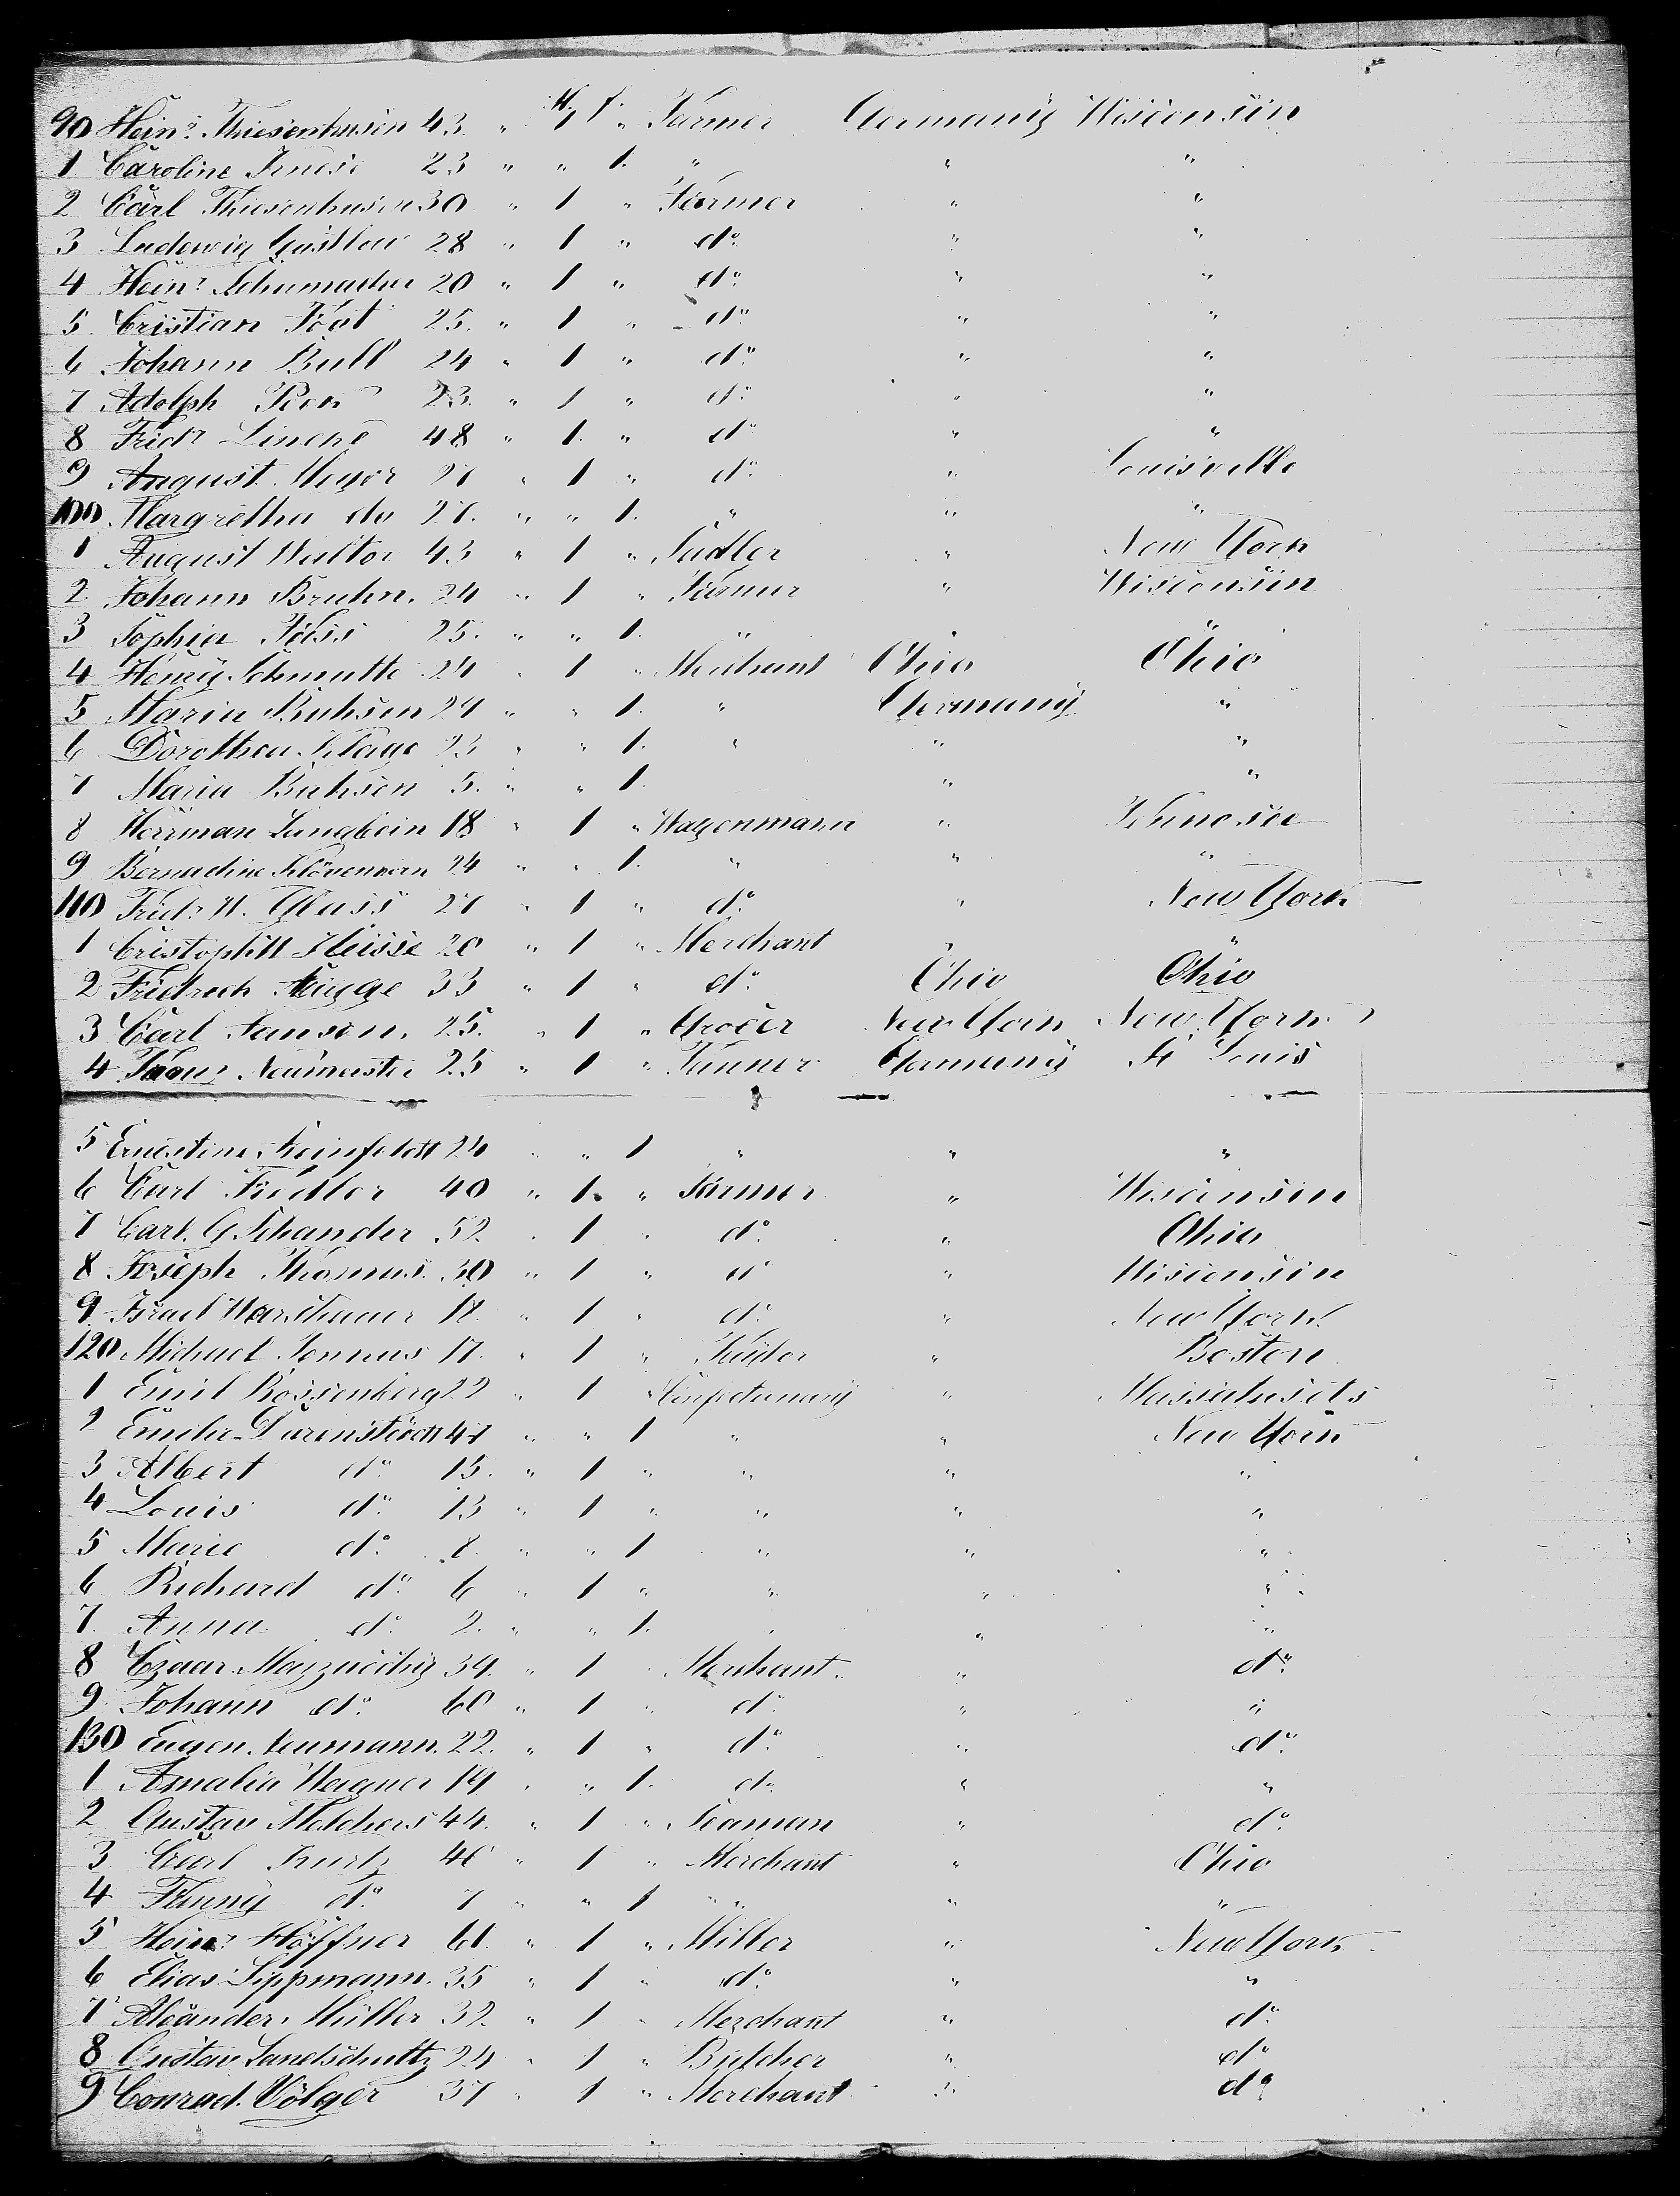 M. f.
90 Heinr. Thiesenhusen 43. " 1 " Farmer Germany Wisconsin
1 Caroline 23 " " 1. " " "
2 Carl Thiesenhusen 30 " 1 " Farmer " "
3 Ludewig Gustlow 28 " 1 " do. " "
4 Heinr. Schumacher 20 " 1 " do. " "
5 Cristian Foot 25. " 1 " do. " "
6 Johann Bull 24 " 1 " do. " "
7 Adolph 23. " 1 " do. " "
8 Fridr. Lincke 48 " 1. " do. " "
9 August Meyer 27 " 1 " do. " Louisville
100 Margretha do 27. " " 1. " " "
1 August Walter 43 " 1 " Sadler " New York
2. Johann Bruhn. 24 " 1 " Farmer " Wisconsin
3 Sophia 25. " " 1. " " "
4 Henry Schmutte 24 " 1 " Merchant Ohio Ohio
5 Maria Buhsen 24 " " 1. " Germany "
6 Dorothea Klage 23 " " 1. " " "
7 Maria Buhsen 5. " " 1. " "
8 Herrman Langbein 18 " 1 " Wagenmann "
9 Bernadine 24 " " 1. " " "
110 Fridr. W. Glass 27 " 1 " do. " New York
1 Cristoph Heisse 20 " 1 " Merchant " "
2 Fridrech 33 " 1 " do. Ohio Ohio
3 Carl Jansen. 25. " 1 " Grocer New York New York
4 Neumeister 25 " 1 " Tanner Germany St Louis
5 Ernestine 24 " " 1 " " "
6 Carl Fiedler 40 " 1. " Farmer " Wisconsin
7 Carl. G. Schander 52 " 1 " do. " Ohio
8 Joseph Thomas. 30 " 1 " do " Wisconsin
9 Israel Warshauer 18. " 1 " do. " New York
120 Michael 17. " 1 " " Boston
1 Emil Rossenberg 22 " 1 " Confectionary " Massatusets
2 Emilie Durenstädt 41 " " 1 " " New York
3 Albert do. 15. " 1 " " " "
4 Louis do. 13 " 1 " " " "
5 Marie do. 8. " " 1 " " "
6 Richard do. 6 " 1 " " " "
7. Anna do. 2. " " 1. " " "
8 34. " 1 " Merchant. " do.
9 Johann do. 60 " 1 " do. " "
130 Eugen Neumann. 22. " 1 " do. " do.
1 Amalia Wagner 19 " " 1. do. " "
2 Gustav Melchers 44. " 1 " Seaman " do.
3 Carl Kurtz 40 " 1 " Merchant " Ohio
4 Fanny do. 7 " " 1 " " "
5 Heinr. Höffner 61. " 1 " Miller " New York
6 Elias Lippmann. 35 " 1 " do. " "
7 Aleander. Müller 32 " 1 " Merchant " do.
8 Gustav Landschultz 24 " 1 " Butcher " do.
9 Conrad. Völger 37 " 1 " Merchant " do